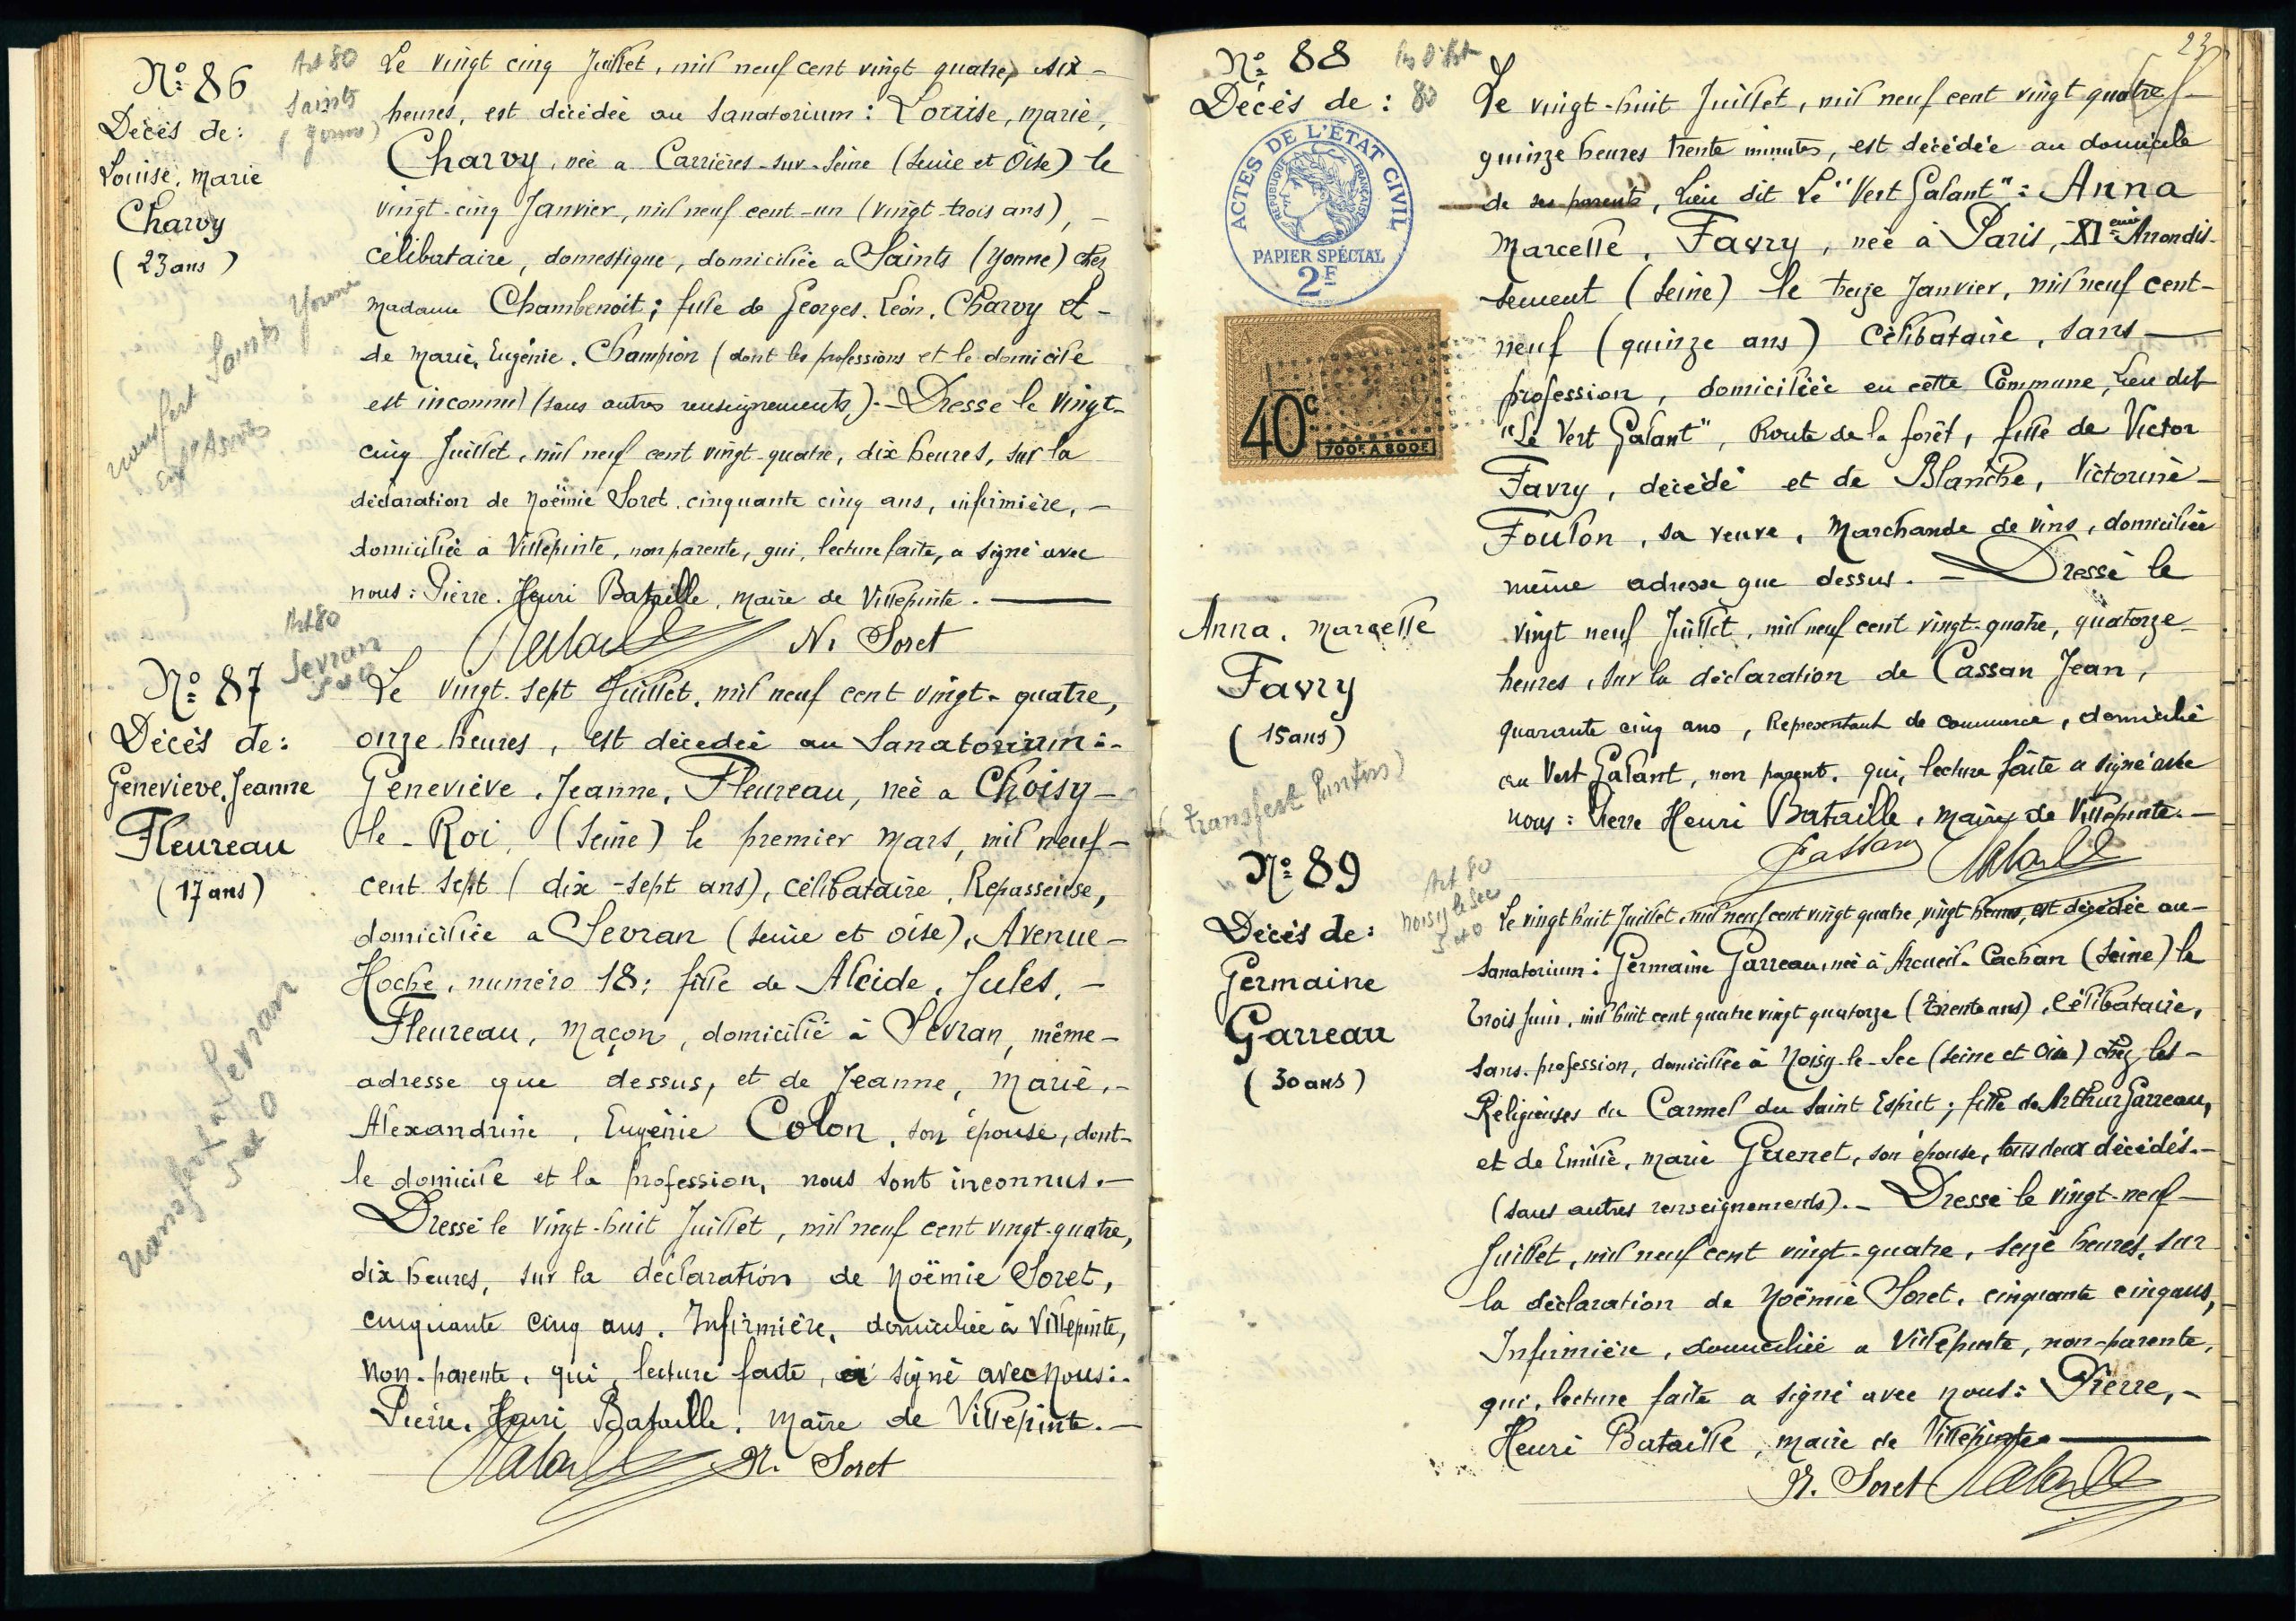 N° 86
Décès de:
Louise, Marie
Charvy
(23 ans)
Art 80
Saints
(Yonne)
transfert Saints Yonne
Le vingt cinq Juillet, mil neuf cent vingt quatre, dix –
heures, est décédée au Sanatorium: Louise, Marie,
Charvy, née a Carrières-sur-Seine (Seine et Oise) le
vingt-cinq Janvier, mil neuf cent-un (vingt-trois ans), –
célibataire, domestique, domiciliée a Saints (Yonne) chez
Madame Chambenoit; fille de Georges, Léon, Charvy et –
de Marie, Eugénie, Champion (dont les professions et le domicile
est inconnu) (sans autres renseignements). – Dressé le vingt-
cinq Juillet, mil neuf cent vingt-quatre, dix heures, sur la
déclaration de Noëmie Soret, cinquante cinq ans, infirmière, –
domiciliée a Villepinte, non parente, qui, lecture faite, a signé avec
nous: Pierre, Henri Bataille, maire de Villepinte. –
Bataille N. Soret
N° 87
Décès de:
Geneviève, Jeanne
Fleureau
(17 ans)
Art 80
Sevran
S et O
transfert à Sevran
S et O
Le vingt-sept Juillet, mil neuf cent vingt-quatre,
onze heures, est décédée au Sanatorium: –
Geneviève, Jeanne, Fleureau, née a Choisy –
le-Roi, (Seine) le premier Mars, mil neuf –
cent sept (dix-sept ans), célibataire, Repasseuse,
domiciliée a Sevran (Seine et Oise), Avenue –
Hoche, numéro 18; fille de Alcide, Jules, –
Fleureau, Maçon, domicilié à Sevran, même –
adresse que dessus, et de Jeanne, Marie, –
Alexandrine, Eugénie Colon, son épouse, dont –
le domicile et la profession, nous sont inconnus. –
Dressé le vingt-huit Juillet, mil neuf cent vingt-quatre,
dix heures, sur la déclaration de Noëmie Soret,
cinquante cinq ans, Infirmière, domiciliée à Villepinte,
non-parente, qui, lecture faite, a signé avec nous: –
Pierre, Henri Bataille, Maire de Villepinte. –
Bataille N. Soret
23
N° 88
Décès de: 80
ACTES DE L'ÉTAT CIVIL
RÉPUBLIQUE FRANÇAISE
PAPIER SPÉCIAL
2F
40c
700F A 800F
Anna, Marcelle
Favry
(15 ans)
(transfert Pantin)
Le vingt-huit Juillet, mil neuf cent vingt quatre, –
quinze heures trente minutes, est décédée au domicile
de ses parents, Lieu dit Le "Vert Galant": Anna
Marcelle, Favry, née à Paris, XIeme Arrondis-
sement (Seine) le treize Janvier, mil neuf cent-
neuf (quinze ans) Célibataire, sans –
profession, domiciliée en cette Commune, Lieu dit
"Le Vert Galant", Route de la forêt, fille de Victor
Favry, décédé et de Blanche, Victorine –
Foulon, sa veuve, Marchande de vins, domiciliée
même adresse que dessus. – Dressé le
vingt neuf Juillet, mil neuf cent vingt-quatre, quatorze –
heures, sur la déclaration de Cassan Jean,
quarante cinq ans, Représentant de commerce, domicilié
au Vert Galant, non parent, qui, lecture faite a signé avec
nous: Pierre Henri Bataille, maire de Villepinte. –
Cassan Bataille
N° 89
Décès de:
Germaine
Garreau
(30 ans)
Art 80
Noisy le Sec
S et O
Le vingt huit Juillet, mil neuf cent vingt quatre, vingt heures, est décédée au –
Sanatorium: Germaine Garreau, née à Arcueil-Cachan (Seine) le
trois Juin, mil huit cent quatre vingt quatorze (trente ans), Célibataire,
sans profession, domiciliée à Noisy-le-Sec (Seine et Oise) chez les –
Religieuses du Carmel du Saint Esprit; fille de Arthur Garreau,
et de Emilie, Marie Guenet, son épouse, tous deux décédés. –
(sans autres renseignements). – Dressé le vingt-neuf –
Juillet, mil neuf cent vingt-quatre, seize heures, sur
la déclaration de Noëmie Soret, cinquante cinq ans,
Infirmière, domiciliée a Villepinte, non-parente,
qui, lecture faite a signé avec nous: Pierre, –
Henri Bataille, maire de Villepinte. –
N. Soret Bataille